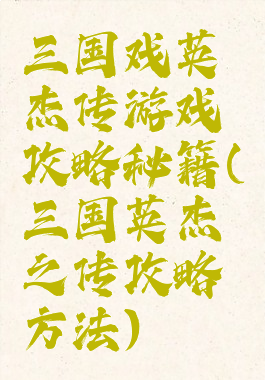 三国戏英
杰传游戏
攻略秘籍(
三国英杰
之传攻略
方法)